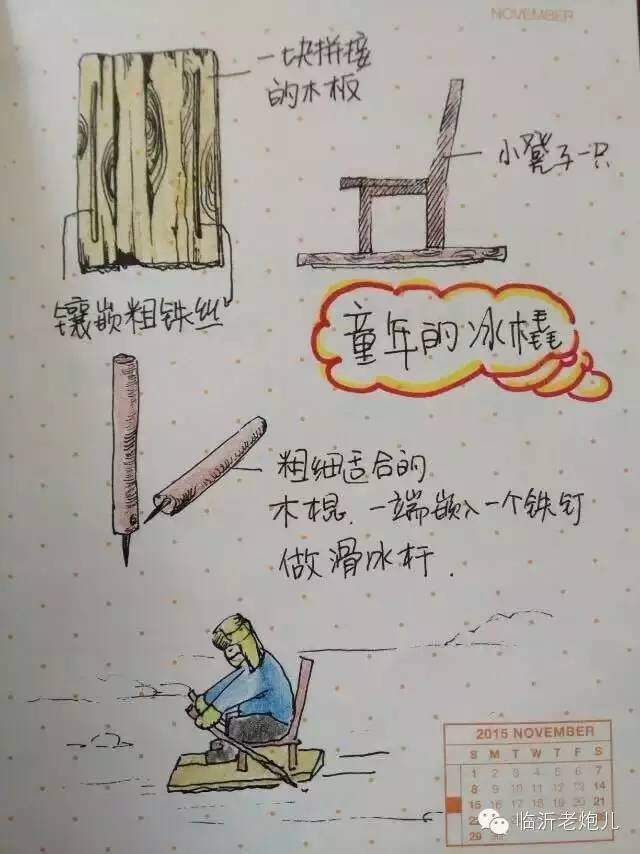 NOVEMBER
一块拼接
的木板
小凳子一只
镶嵌粗铁丝
童年的冰橇
粗细适合的
木棍.一端嵌入一个铁钉
做滑冰杆.
2015 NOVEMBER
S M T W T F S
1 2 3 4 5 6 7
8 9 10 11 12 13 14
15 16 17 18 19 20 21
22
29 30
临沂老炮儿